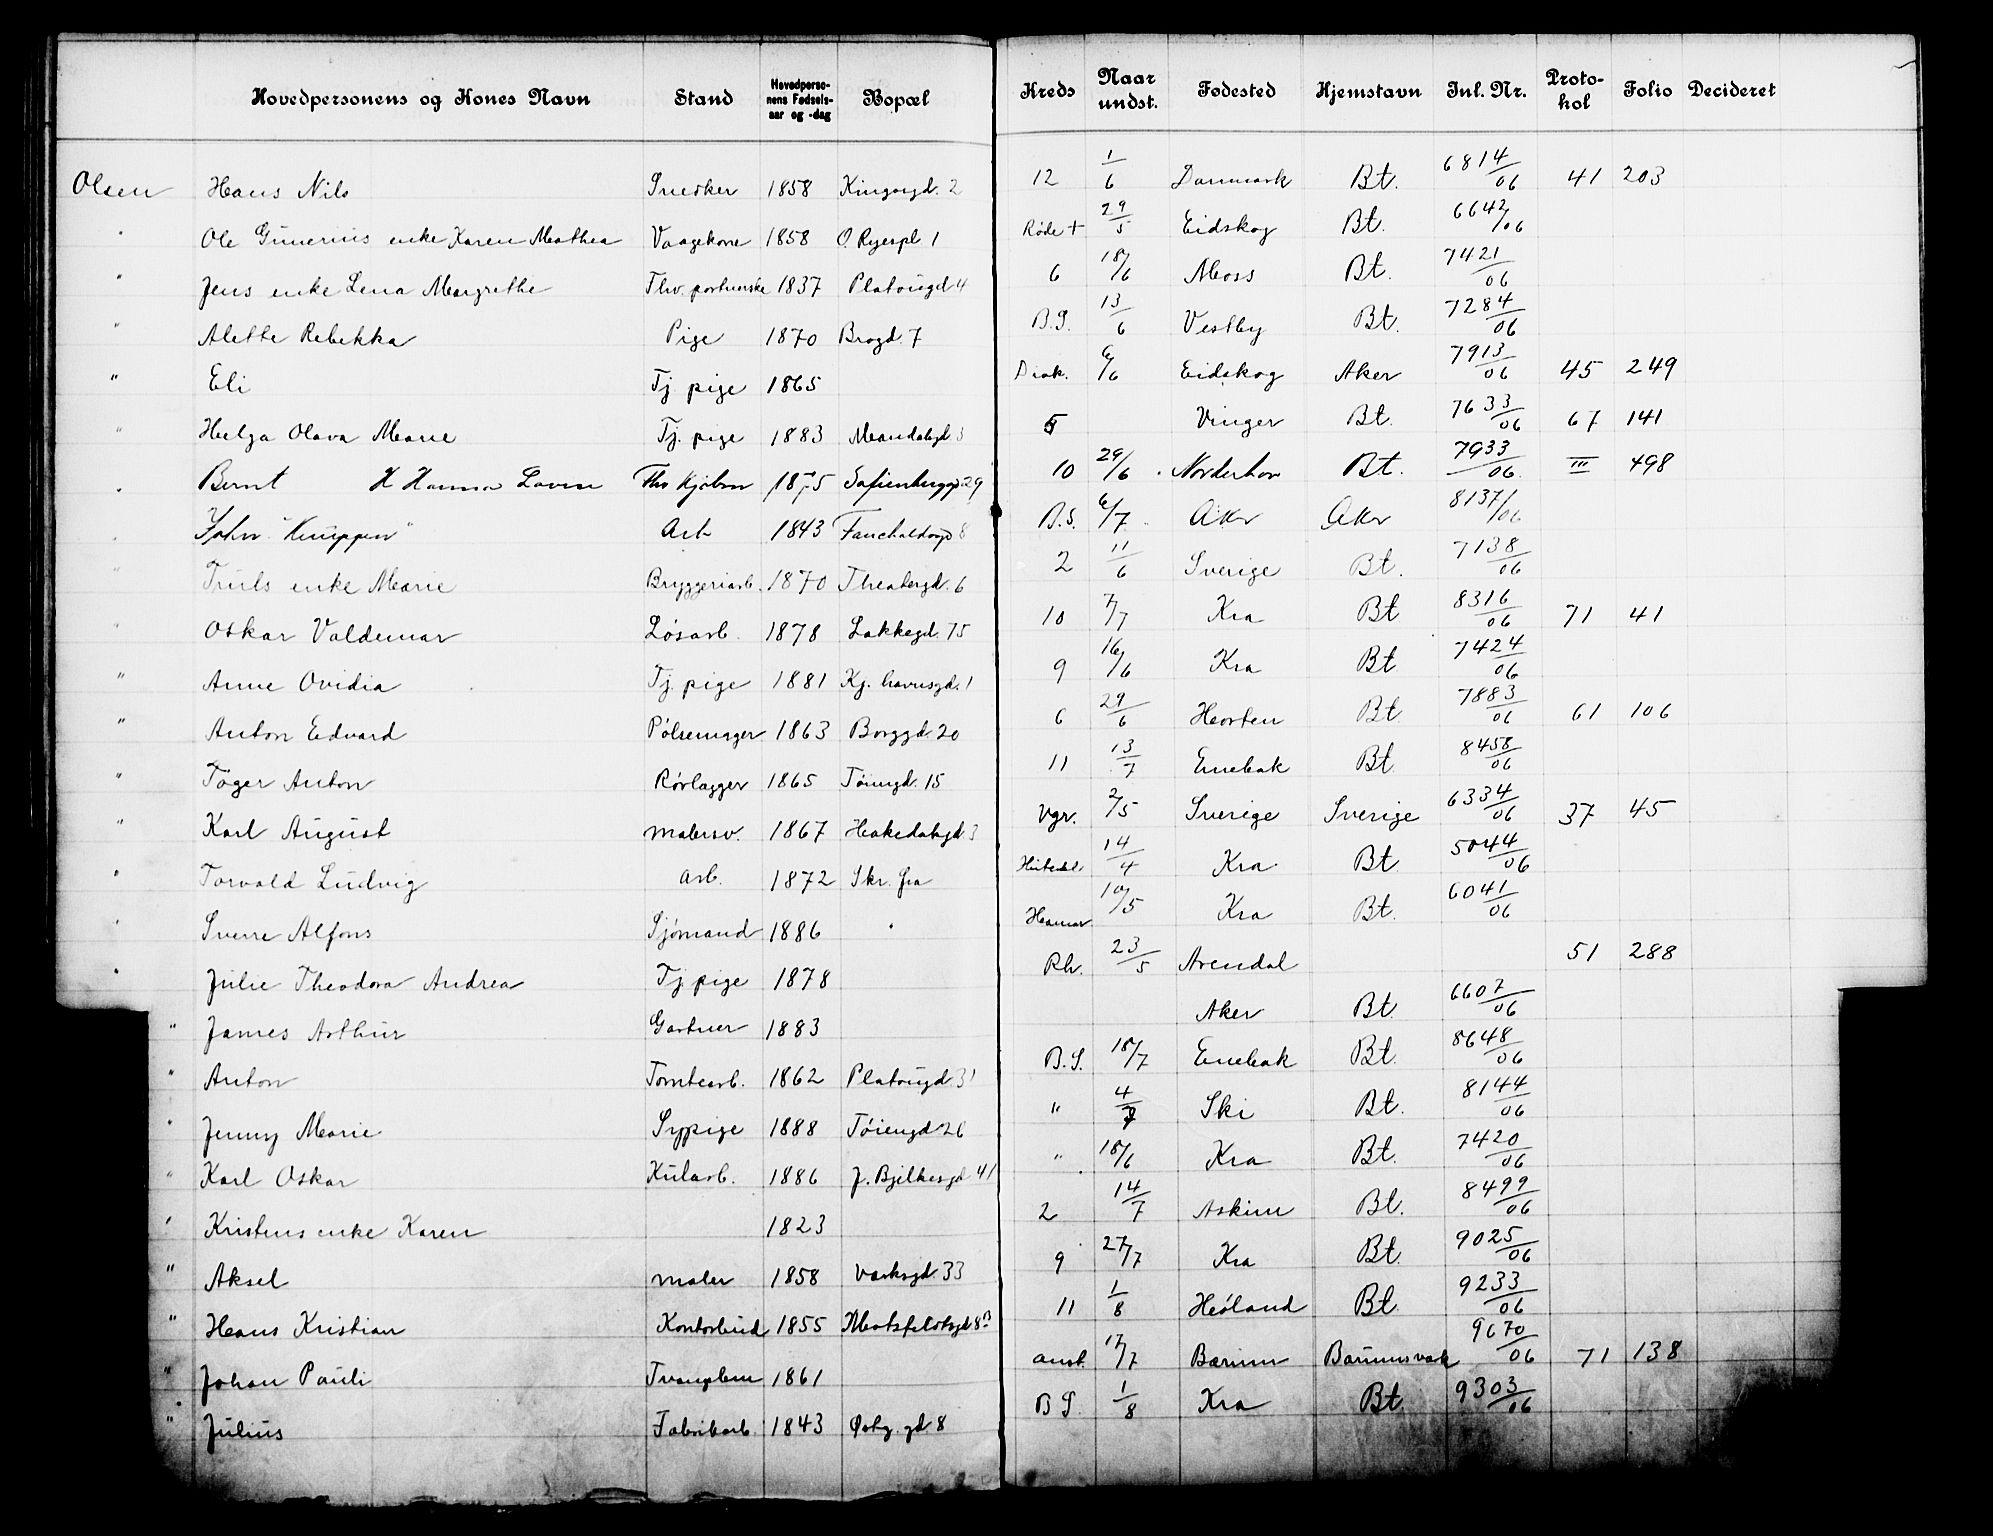 Hovedpersonens og Kones Navn Stand Hovedperso-nens Fødsels-aar og -dag Bopæl Kreds Naar undst. Fødested Hjemstavn Inl. Nr. Proto-kol Folio Decideret
Olsen Hans Nils Snedker 1858 Kingosgd. 2 12 1/6 Danmark Bt. 6814/06 41 203
" Ole Gunerius enke Karen Mathea Vaagekone 1858 O. Ryespl. 1 Røde + 29/5 Eidskog Bt. 6642/06
" Jens enke Lena Margrethe Fhv. portnerske 1837 Platougd 4 6 18/6 Moss Bt. 7421/06
" Alette Rebekka Pige 1870 Brogd. 7 B.S. 13/6 Vestby Bt. 7284/06
" Eli Tj. pige 1865 Diak. 6/6 Eidskog Aker 7913/06 45 249
" Helga Olava Marie Tj. pige 1883 Maridalsgd 3 5 Vinger Bt. 7633/06 67 141
" Bernt H Hanna Lovise Fhv Kjøbm 1875 Sofienberggd. 29 10 29/6 Norderhov Bt. 7933/06 III 498
" John "Knuppen" Arb 1843 Fauchaldsgd 8 B.S. 6/7 Aker Aker 8137/06
" Truls enke Marie Bryggeriarb. 1870 Theatergd. 6 2 11/6 Sverige Bt. 7138/06
" Oskar Valdemar Løsarb. 1878 Lakkegd. 75 10 7/7 Kra Bt 8316/06 71 41
" Anne Ovidia Tj. pige 1881 Kj. havnsgd. 1 9 16/6 Kra Bt 7424/06
" Anton Edvard Pølsemager 1863 Borggd. 20 6 29/6 Horten Bt 7883/06 61 106
" Tøger Anton Rørlægger 1865 Tøiengd. 15 11 13/7 Enebak Bt 8458/06
" Karl August malersv. 1867 Hakedalsgd 3 Vgr. 2/5 Sverige Sverige 6334/06 37 45
" Torvald Ludvig arb. 1872 Skr. fra 14/4 Kra Bt 5044/06
" Sverre Alfons Sjømand 1886 " Hamar 10/5 Kra Bt. 6041/06
" Julie Theodora Andrea Tj. pige 1878 Rh. 23/5 Arendal 51 288
" James Arthur Gartner 1883 Aker Bt 6607/06
" Anton Tomtearb. 1862 Platougd. 31 B.S. 18/7 Enebak Bt. 8648/06
" Jenny Marie Sypige 1888 Tøiengd 26 " 4/7 Ski Bt. 8144/06
" Karl Oskar Kularb. 1886 J. Bjelkesgd 41 " 18/6 Kra Bt. 7420/06
" Kristens enke Karen 1823 2 14/7 Askim Bt. 8499/06
" Aksel maler 1858 Værksgd. 33 9 27/7 Kra Bt 9025/06
" Hans Kristian Kontorbud 1855 8B 11 1/8 Høland Bt 9233/06
" Johan Pauli 1861 anst. 17/7 Bærum Bærumsvæk 9670/06 71 138
" Julius Fabrikarb. 1843 Østg. gd. 8 B S. 1/8 Kra Bt 9303/06